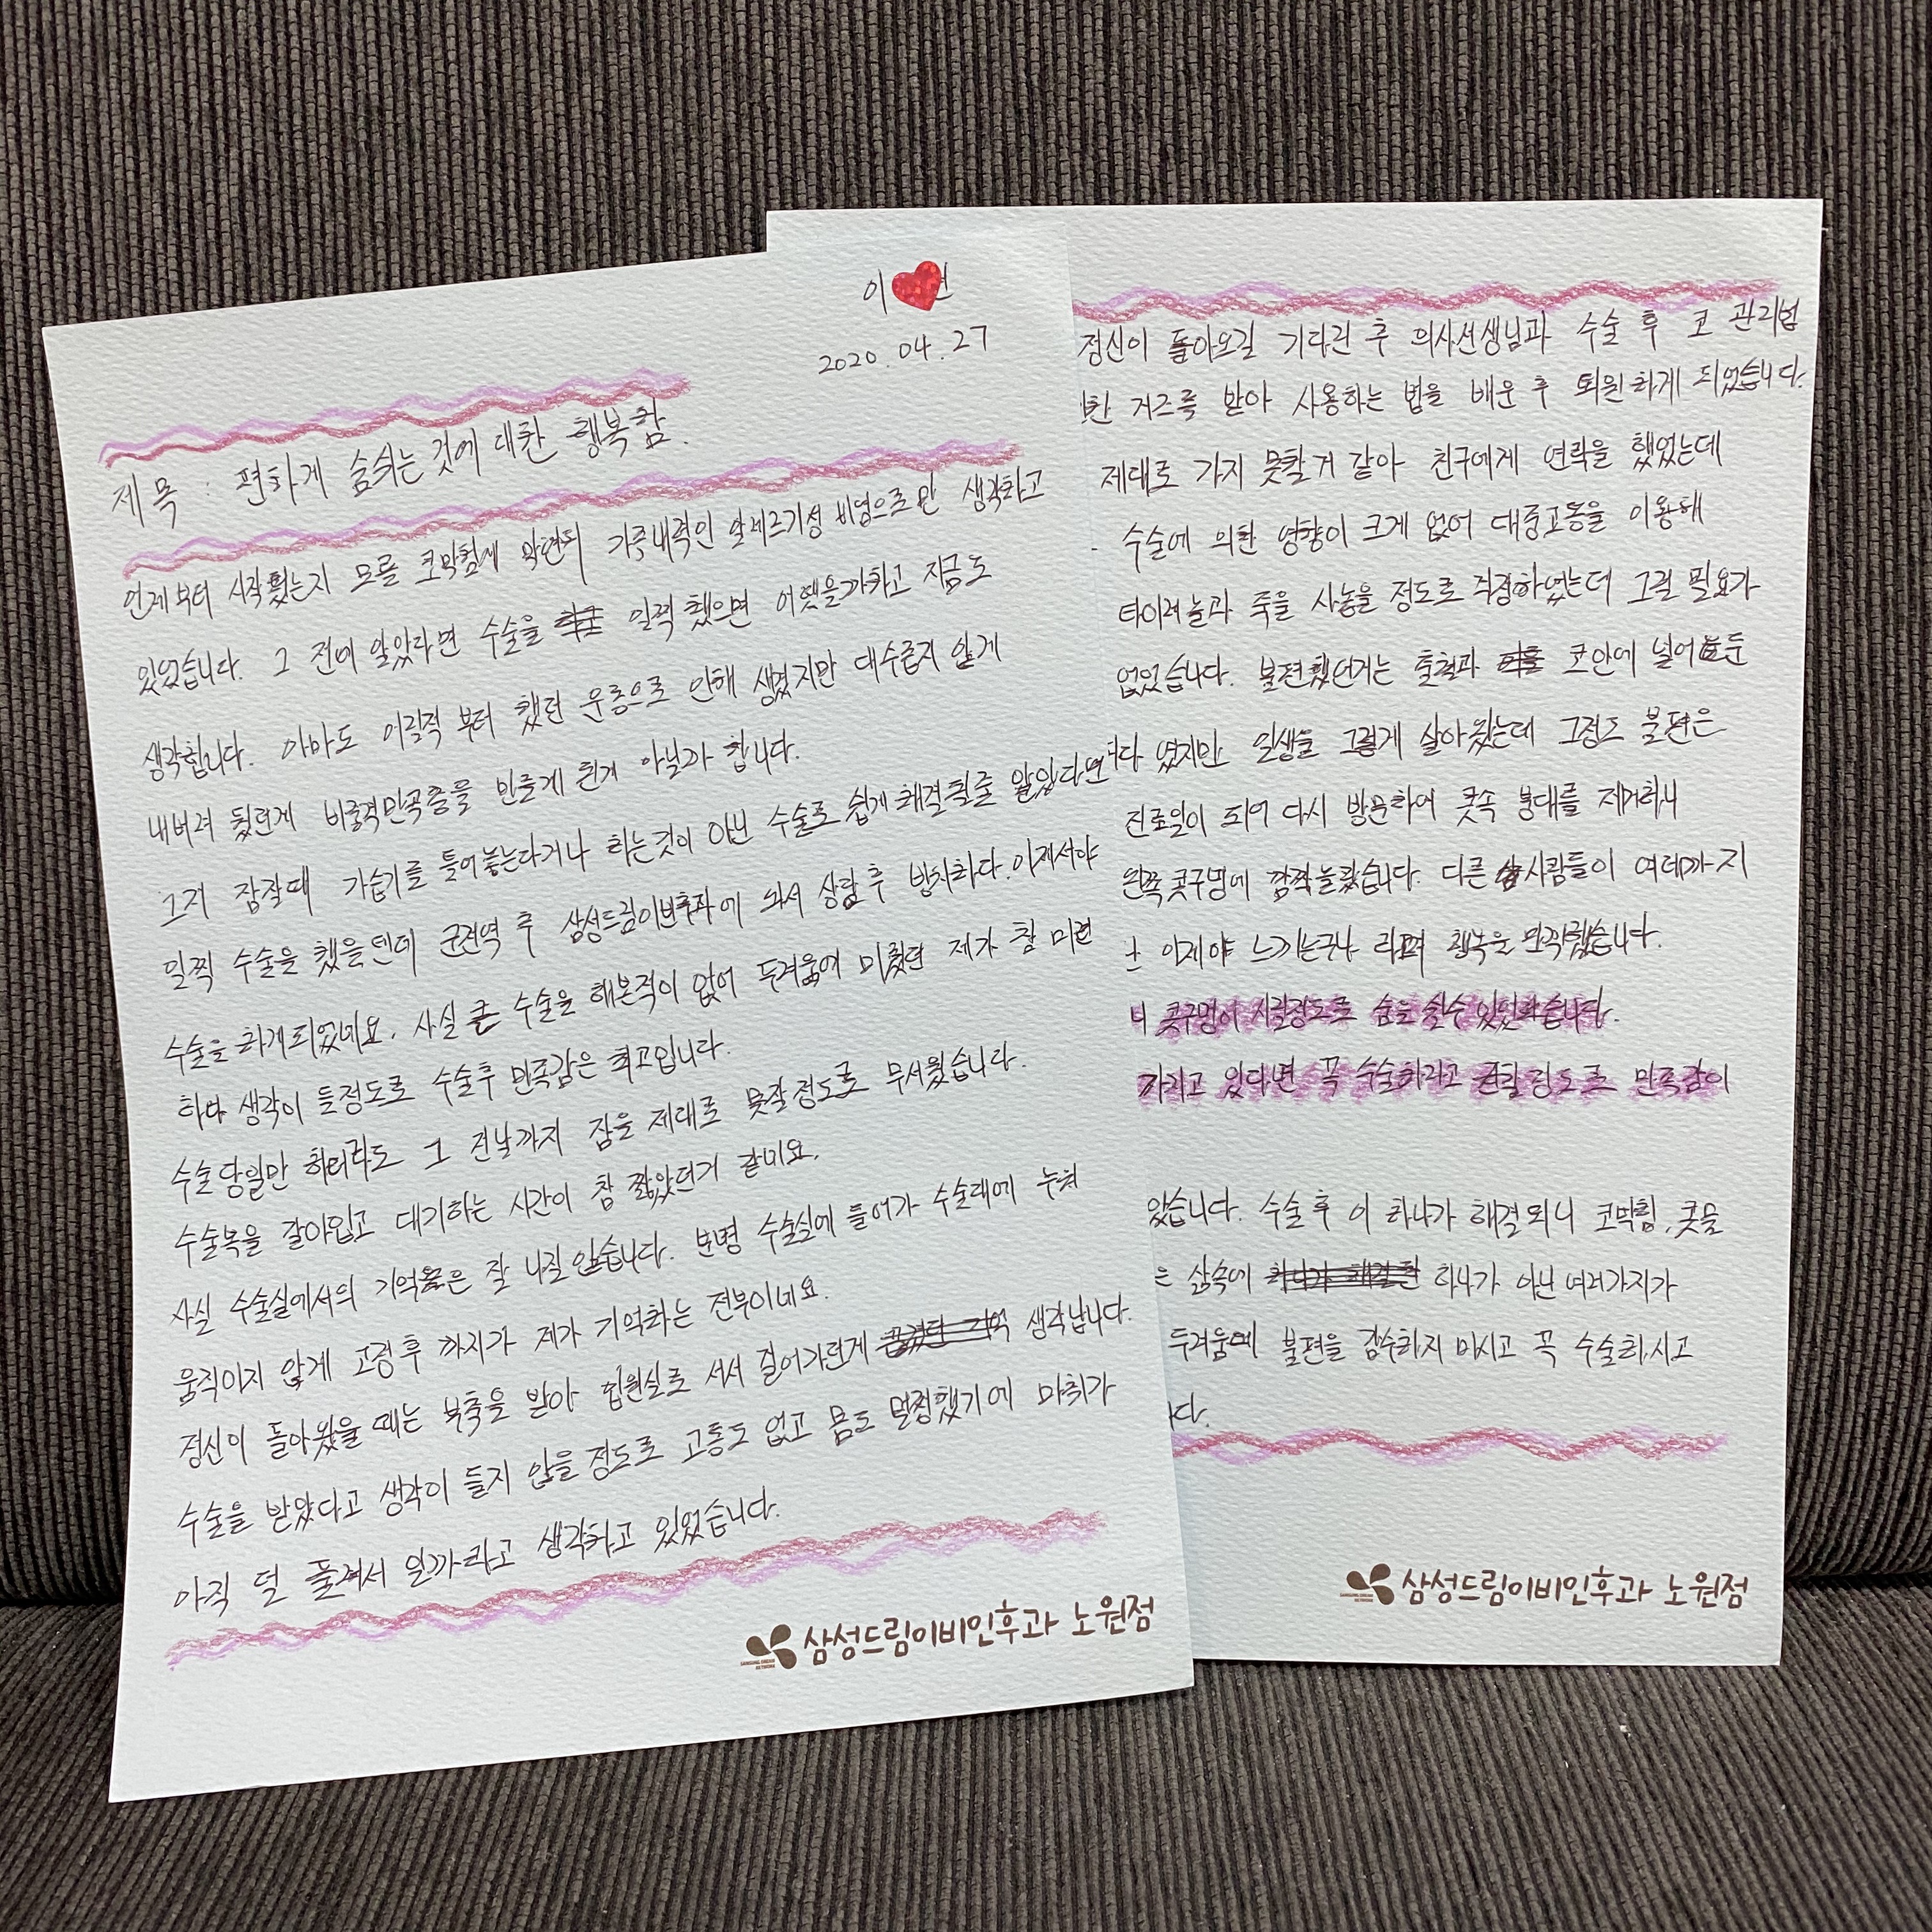 이
2020.04.27
제목 : 편하게 숨쉬는 것에 대한 행복함.
언제부터 시작됬는지 모를 코막힘에 막연히 가족내력인 알레르기성 비염으로만 생각하고
있었습니다. 그 전에 알았다면 수술을 일찍 했으면 어땠을까하고 지금도
생각합니다. 아마도 어릴적 부터 했던 운동으로 인해 생겼지만 대수롭지 않게
내버려 뒀던게 비중격만곡증을 만들게 된게 아닐까 합니다.
그저 잠잘때 가습기를 틀어놓는다거나 하는것이 아닌 수술로 쉽게 해결될줄 알았다면
일찍 수술을 했을텐데 군전역 후 삼성드림이비인후과에 와서 상담 후 방치하다. 이제서야
수술을 하게되었네요. 사실 큰 수술을 해본적이 없어 두려움에 미뤘던 제가 참 미련
하다 생각이 들정도로 수술후 만족감은 최고입니다.
수술당일만 하더라도 그 전날까지 잠을 제대로 못잘정도로 무서웠습니다.
수술복을 갈아입고 대기하는 시간이 참 짧았던거 같네요.
사실 수술실에서의 기억은 잘 나질 않습니다. 분명 수술실에 들어가 수술대에 누워
움직이지 않게 고정후 까지가 제가 기억하는 전부이네요.
정신이 돌아왔을 때는 부축을 받아 입원실로 서서 걸어가던게 생각납니다.
수술을 받았다고 생각이 들지 않을 정도로 고통도 없고 몸도 멀쩡했기에 마취가
아직 덜 풀려서 일까라고 생각하고 있었습니다.
삼성드림이비인후과 노원점
정신이 돌아오길 기다린 후 의사선생님과 수술 후 코 관리법
한 거즈를 받아 사용하는 법을 배운 후 퇴원하게 되었습니다.
제대로 가지 못할거 같아 친구에게 연락을 했었는데
수술에 의한 영향이 크게 없어 대중교통을 이용해
타이레놀과 죽을 사놓을 정도로 걱정하였는데 그럴 필요가
없었습니다. 불편했던거는 출혈과 코안에 넣어둔
였지만 일생을 그렇게 살아왔는데 그정도 불편은
진료일이 되어 다시 방문하여 콧속 붕대를 제거하니
왼쪽 콧구멍에 깜짝놀랐습니다. 다른 사람들이 여태까지
이제야 느끼는구나 라며 행복을 만끽했습니다.
콧구멍이 시릴정도로 숨을 쉴수 있었습니다.
가지고 있다면 꼭 수술하라고 권할정도로 만족감이
있습니다. 수술 후 이 하나가 해결되니 코막힘, 콧물
은 삶속에 하나가 아닌 여러가지가
두려움에 불편을 감수하지 마시고 꼭 수술하시고
다.
삼성드림이비인후과 노원점